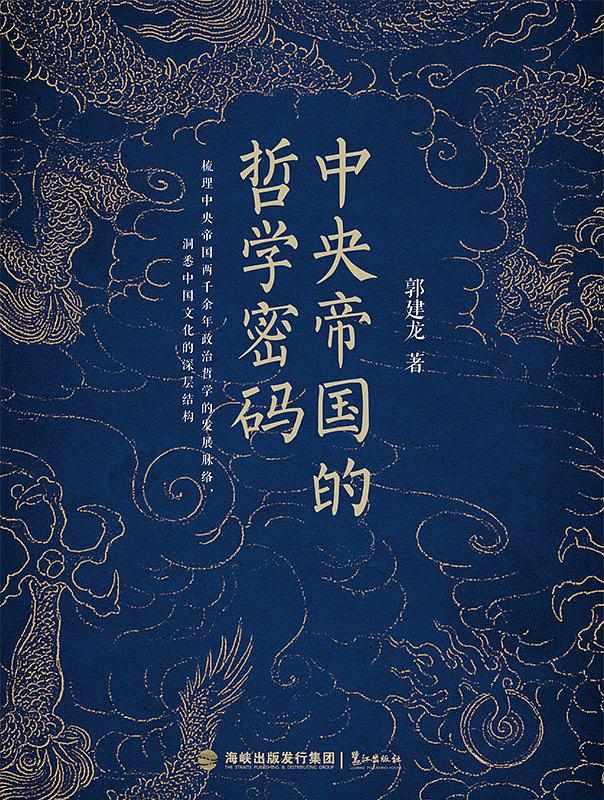 郭建龙 著
中央帝国的
哲学密码
梳理中央帝国两千余年政治哲学的发展脉络，
洞悉中国文化的深层结构
海峡出版发行集团
THE STRAITS PUBLISHING & DISTRIBUTING GROUP
鹭江出版社